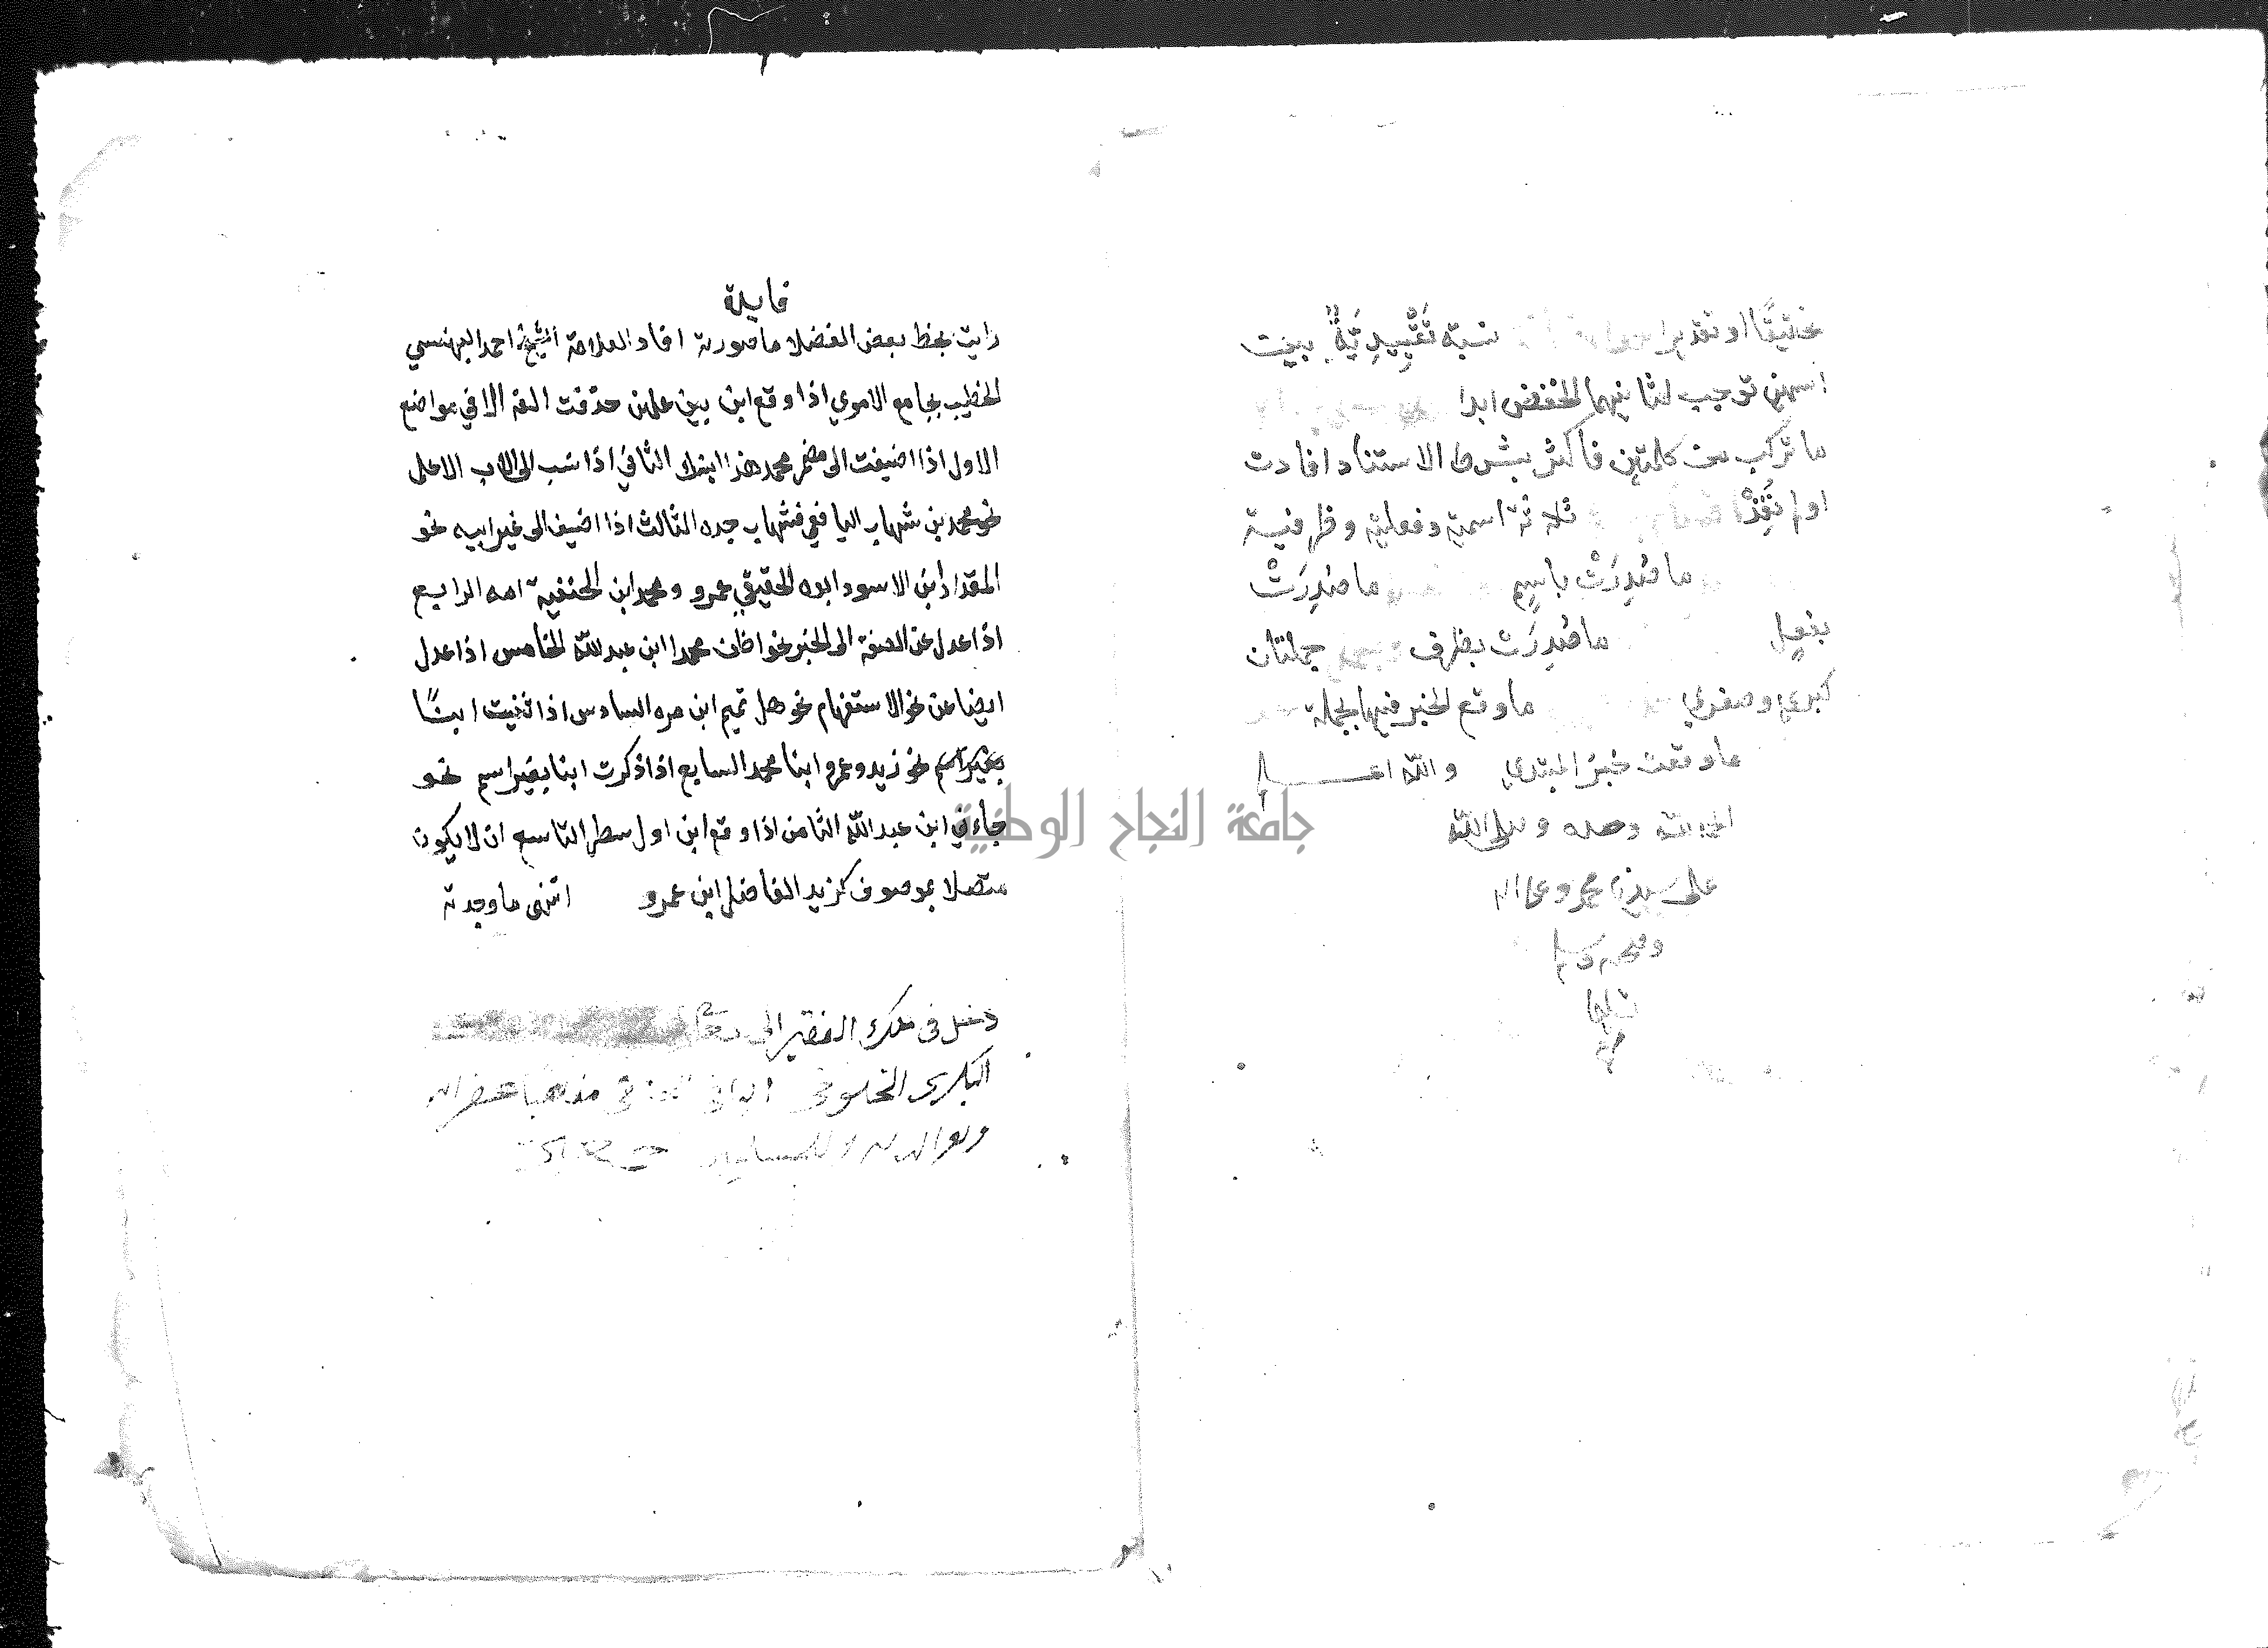 تحقيقًا او تقديرا نسبة تَقْيِيدِيَّةٌ بين
اسمين توجب لثانيهما الخفض ابدا
ما تركب من كلمتين فاكثر بشرط الاستناد افادت
او لم تُفِدْ ثلاثة اسمية وفعلية وظرفية
ما صُدِرَتْ باسمٍ ما صُدِرَتْ
بفعلٍ ما صُدِرَت بظرف جملتان
كبري وصغري ما وقع الخبر فيها جملة
ما وقعت خبر المبتدي والله اعلم
الحمد لله وحده وصلى الله
على سيدنا محمد وعلى اله
وصحبه وسلم
فايدة
رايت بخط بعض الفضلا ما صورته افاد العلامة الشيخ احمد البهنسي
الخطيب بجامع الاموي اذا وقع ابن بين علمين حذفت الفه الا في مواضع
الاول اذا اضيفت الى مضمر محمد هذا ابنك الثاني اذا نسب الى الاب الاعلى
نحو محمد بن شهاب اليافعي فشهاب جده الثالث اذا اضيف الى غير ابيه نحو
المقداد ابن الاسود ابوه الحقيقي عمرو ومحمد ابن الحنفية امه الرابع
اذا عدل عن الصفة الى الخبر نحو اظن محمدا ابن عبد الله الخامس اذا عدل
ايضا عن نحو الاستفهام نحو هل تميم ابن مره السادس اذا ثنيت ابنًا
بغير اسم نحو زيد وعمرو ابنا محمد السابع اذا ذكرت ابنا بغير اسم نحو
جاءني ابن عبد الله الثامن اذا وقع ابن اول سطر التاسع ان لا يكون
متصلا بموصوف كزيد الفاضل ابن عمرو انتهى ما وجدته
دخل في ملك الفقير الى
البكري الخلوتي مذهبا غفر الله
ولوالديه وللمسلمين
جامعة النجاح الوطنية